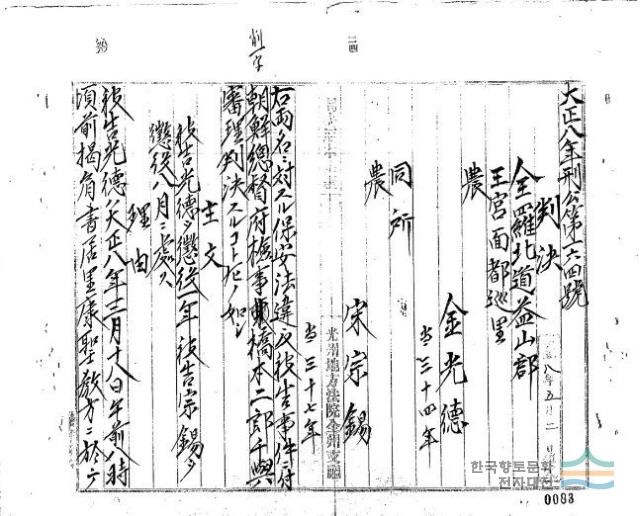 大正八年刑公第一六四號
判決
全羅北道益山郡
王宮面都巡里
農
金光德
当三十四年
同所
農
宋宗錫
当三十七年
光州地方法院全州支廳
右両名ニ対スル保安法違反被告事件ニ付
朝鮮總督府檢事橋本二郎干與
審理判決スルコト左ノ如シ
主文
被告光德ヲ懲役一年被告宗錫ヲ
懲役八月ニ處ス
理由
被告光德ハ大正八年三月十八日午前八時
頃前揭肩書居里康聖敎方ニ於テ
削一字
한국향토문화
전자대전
0083